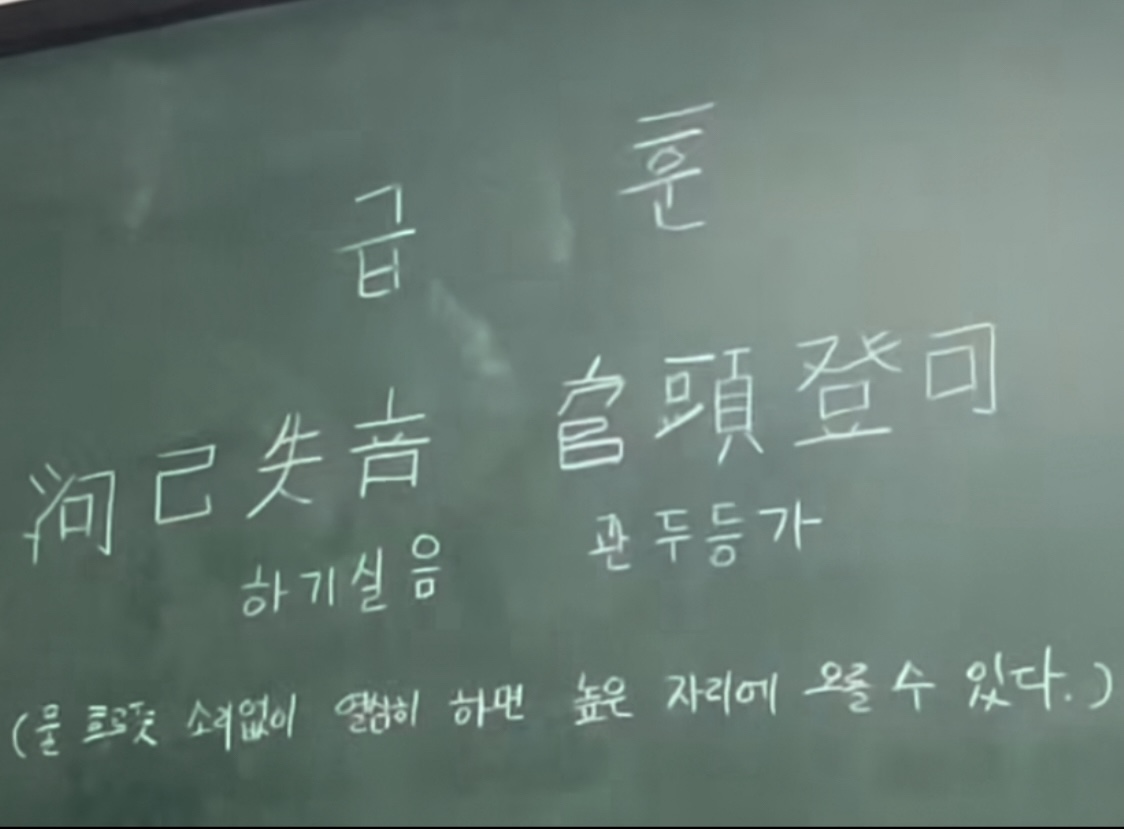 급훈
河己失音 官頭登可
하기실음 관두등가
(물 흐르듯 소리없이 열심히 하면 높은 자리에 오를 수 있다.)